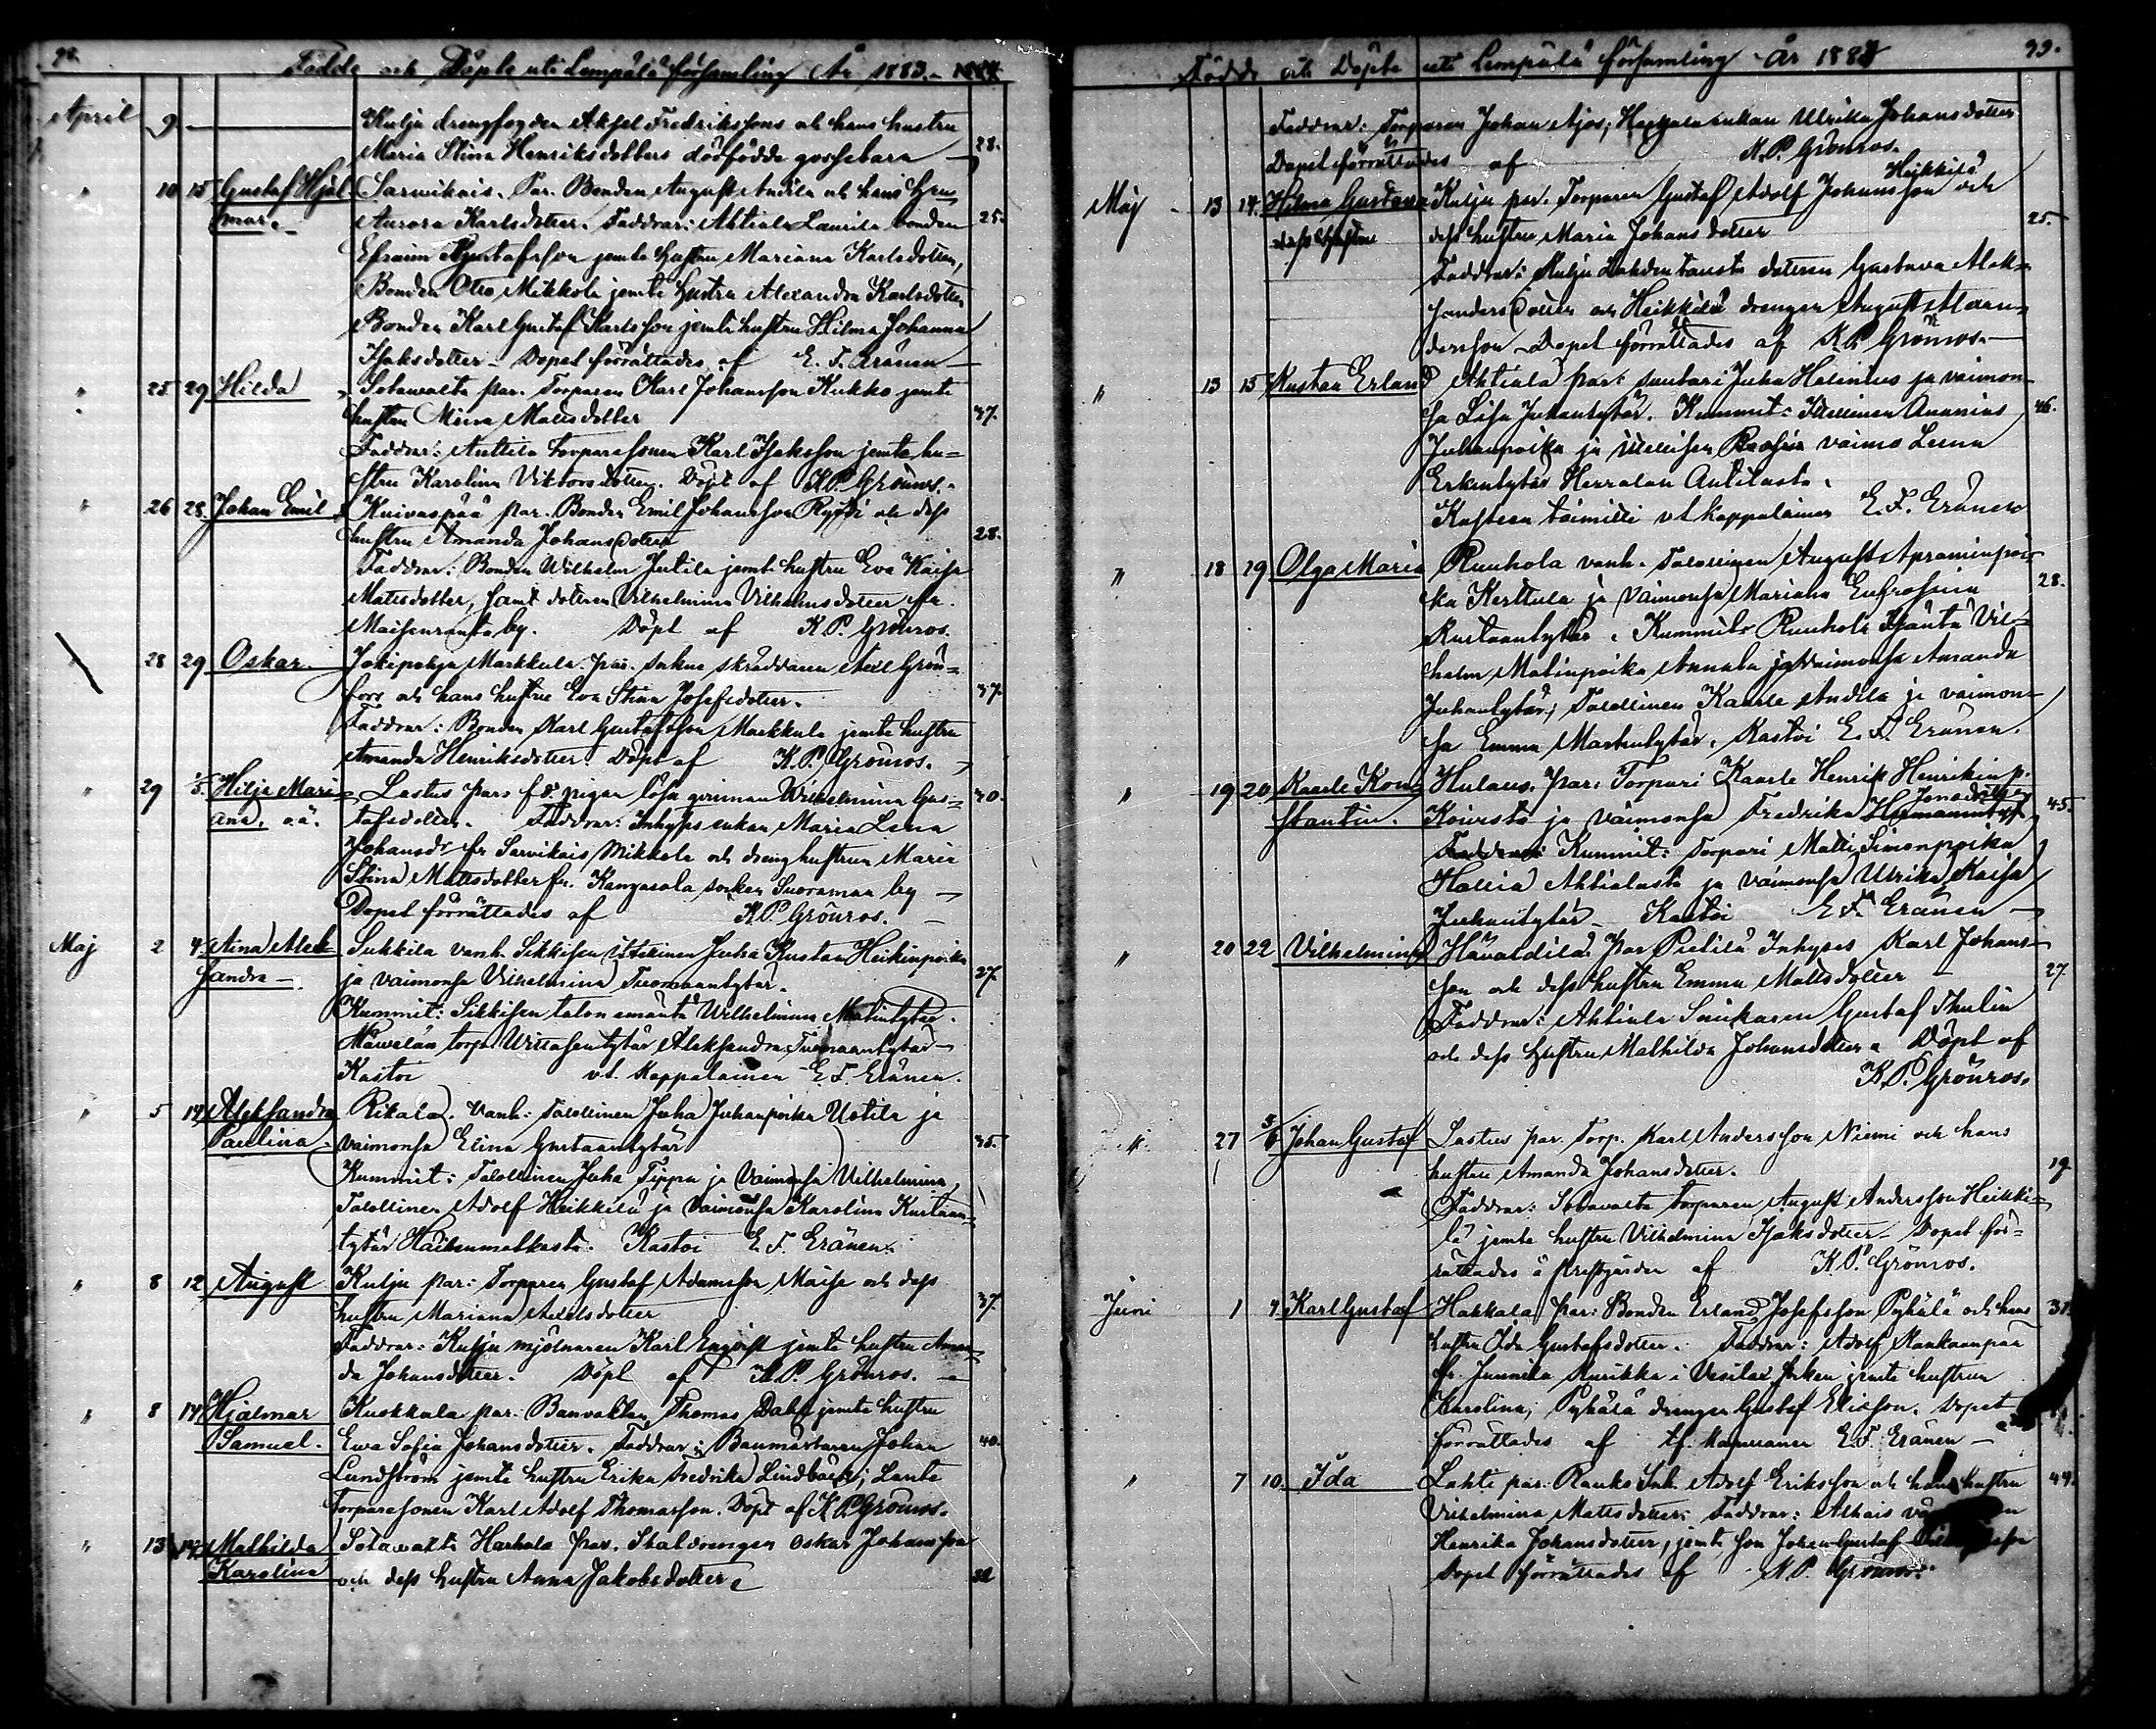 98.
Födde och Döpte uti Lempälä församling År 1883.
April 9 Kulju drengfogden Aksel Fredrikssons och hans hustru
Maria Stina Henriksdotters dödfödda gossebarn 28.
" 10 15 Gustaf Hjal Sarvikais. Par. Bonden August Andila och hans Hustru
mar. Aurora Karlsdotter. Faddrar: Ahtiala Laurila bonden 25.
Efraim Gustafsson jemte hustru Mariana Karlsdotter,
Bonden Otto Mikkola jemte hustru Alexandra Karlsdotter
Bonden Karl Gustaf Karlsson jemte hustru Hilma Johanna
Isaksdotter. Dopet förrättades af E. F. Eränen
" 25 29 Hilda Sotavalta par. Torparen Karl Johansson Kukko jemte
hustru Miina Mattsdotter 37.
Faddrar: Anttila torparesonen Karl Isaksson jemte hu=
stru Karolina Viktorsdotter. Döpt af K.P. Grönroos.
" 26 28 Johan Emil Kuivaspää par. Bonden Emil Johansson Rypti och dess
hustru Amanda Johansdotter 28.
Faddrar: Bonden Wilhelm Jutila jemte hustru Eva Kaisa
Mattsdotter, samt dottren Vilhelmina Vilhelmsdotter
by. Döpt af K.P. Grönroos.
" 28 29 Oskar. Jokipohja Markkula par. socknes skräddaren Axel Grön=
fors och hans hustru Eva Stina Josefsdotter. 37.
Faddrar: Bonden Karl Gustafsson Markkula jemte hustru
Amanda Henriksdotter. Döpt af K.P. Grönroos.
" 29 Hilja Mari Lastus par. f.d. pigan lösa qvinnan Wilhelmina Gus= 40.
ana, oä. tafsdotter. Faddrar: Inhyses enkan Maria Lena
Johansdr fr Sarvikais Mikkola och dreng hustrun Maria
Stina Mattsdotter fr. Kangasala socken Suoramaa by
Dopet förrättades af K.P. Grönroos.
Maj 2 4 Aina Alek Sukkila vanh. Sikkisen itsekinen Juha Kustaa Heikinpoika
sandra ja vaimonsa Vilhelmina Tuomaantytär. 27
Kummit: Sikkisen talon emäntä Wilhelmina Matintytär.
torp. Aleksandra Tuomaantytär
Kastoi v.t. Kappalainen E.F. Eränen.
" 5 14 Aleksandra Rikala. Vanh: Talollinen Juha Juhanpoika Uotila ja
Paulina vaimonsa Elina Gustaantytär 35.
Kummit: Talollinen Juha Tippa ja Vaimonsa Vilhelmina,
Talollinen Adolf Heikkilä ja Vaimonsa Karolina Kustaan
tytär. Kastoi E.F. Eränen.
" 8 12 August Kulju par: Torparen Gustaf Adamsson Maisa och dess
hustru Mariana Axelsdotter 37.
Faddrar: Kulju mjölnaren Karl Enqvist jemte hustru Aman
da Johansdotter. Döpt af K.P. Grönroos.
" 8 14 Hjalmar Kuokkala par. Banvakten Thomas Dahl jemte hustru
Samuel. Ewa Sofia Johansdotter. Faddrar: Banmästaren Johan 40.
Lundström jemte hustru Erika Fredrika Lindbäck; Lante
Torparesonen Karl Adolf Thomasson. Döpt af K.P. Grönroos.
" 13 14 Mathilda Sotavalta Harhala par. Staldrengen Oskar Johansson
Karolina och dess hustru Anna Jakobsdotter 32
99.
Födde och Döpte uti Lempälä församling år 1883
Faddrar: Torparen Johan Ajos; enkan Ulrika Johansdotter
Dopet förrättades af K.P. Grönroos.
Heikkilä
Maj 13 14. Hilma Gustava Kulju par. Torparen Gustaf Adolf Johansson och
dess hustru Maria Johansdotter 25.
Faddrar: Kulju dottren Gustava Alek=
sandersdotter och Heikkilä drengen August Alexan
dersson. Dopet förrättades af K.P. Grönroos.
" 13 15 Kustaa Erland Ahtiala par: suutari Juha Helenius ja vaimon
sa Lisa Juhantytär. Kummit: Itsellinen Ananias 46.
Juhanpoika ja Itsellisen vaimo Leena
Erkintytär Herralan Anttilasta.
Kasteen toimitti v.t. kappalainen E.F. Eränen
" 18 19 Olga Maria Ruuhola vanh. Talollinen August Apraminpoi
ka Kerttula ja vaimonsa Mariana Eufrosina 28.
Kustaantytär. Kummit: Ruuhola Isäntä Vil=
helm Matinpoika Annala ja vaimonsa Amanda
Juhantytär; Talollinen Kaarle Andila ja vaimon
sa Emma Martintytär. Kastoi E.F. Eränen.
" 19 20 Kaarle Kons Hulaus. Par: Torpari Kaarle Henrik Henrikin p.
stantin. Koivisto ja vaimonsa Fredrika 45.
Kummit: Torpari Matti Simonpoika
Hallia Ahtialasta ja vaimonsa Ulrika Kaisa
Juhantytär. Kastoi E.F. Eränen
" 20 22 Vilhelmina Par Pietilä Inhyses Karl Johans
son och dess hustru Emma Mattsdotter 27.
Faddrar: Ahtiala Gustaf Thulin
och dess hustru Mathilda Johansdotter. Döpt af
K.P. Grönroos.
" 27 3/6 Johan Gustaf Lastus par. Torp. Karl Andersson Niemi och hans
hustru Amanda Johansdotter. 19
Faddrar: Sotavalta torparen August Andersson Heikki=
lä jemte hustru Vilhelmina Isaksdotter. Dopet för=
rättades å prestgården af K.P. Grönroos.
Juni 1 4 Karl Gustaf Hakkala par: Bonden Erland Josefsson Pyhälä och hans 31
hustru Ida Gustafsdotter. Faddrar: Adolf Mankaanpää
fr. Junnila Kurikka i Vesilax socken jemte hustrun
Karolina; Pyhälä drengen Gustaf Eliasson. Dopet
förrättades af tf. Kapellanen E.F. Eränen
" 7 10 Ida Lahti par. Adolf Eriksson och hans hustru 44.
Vilhelmina Mattsdotter. Faddrar:
Henrika Johansdotter, jemte son Johan Gustaf
Dopet förrättades af K.P. Grönroos.